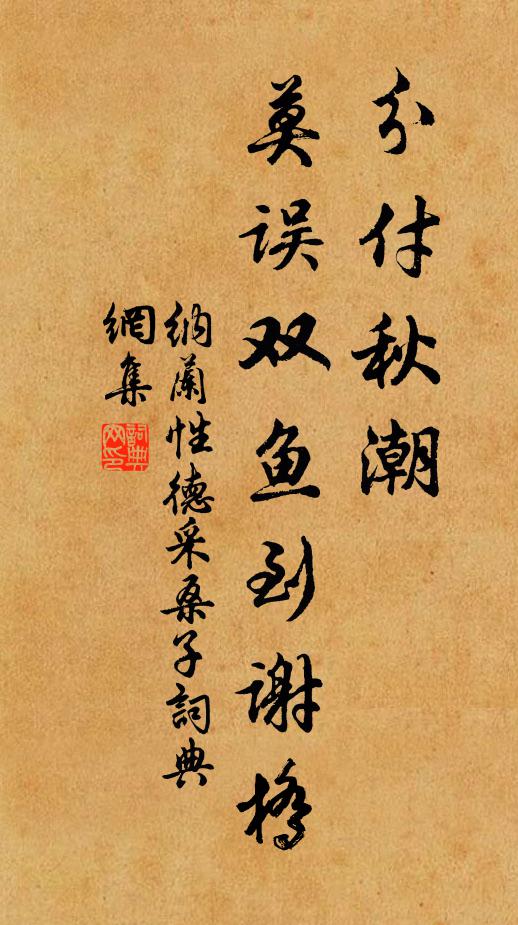 分付秋潮
莫误双鱼到谢桥
纳蘭性德采桑子詞典
網集
詞典
网印